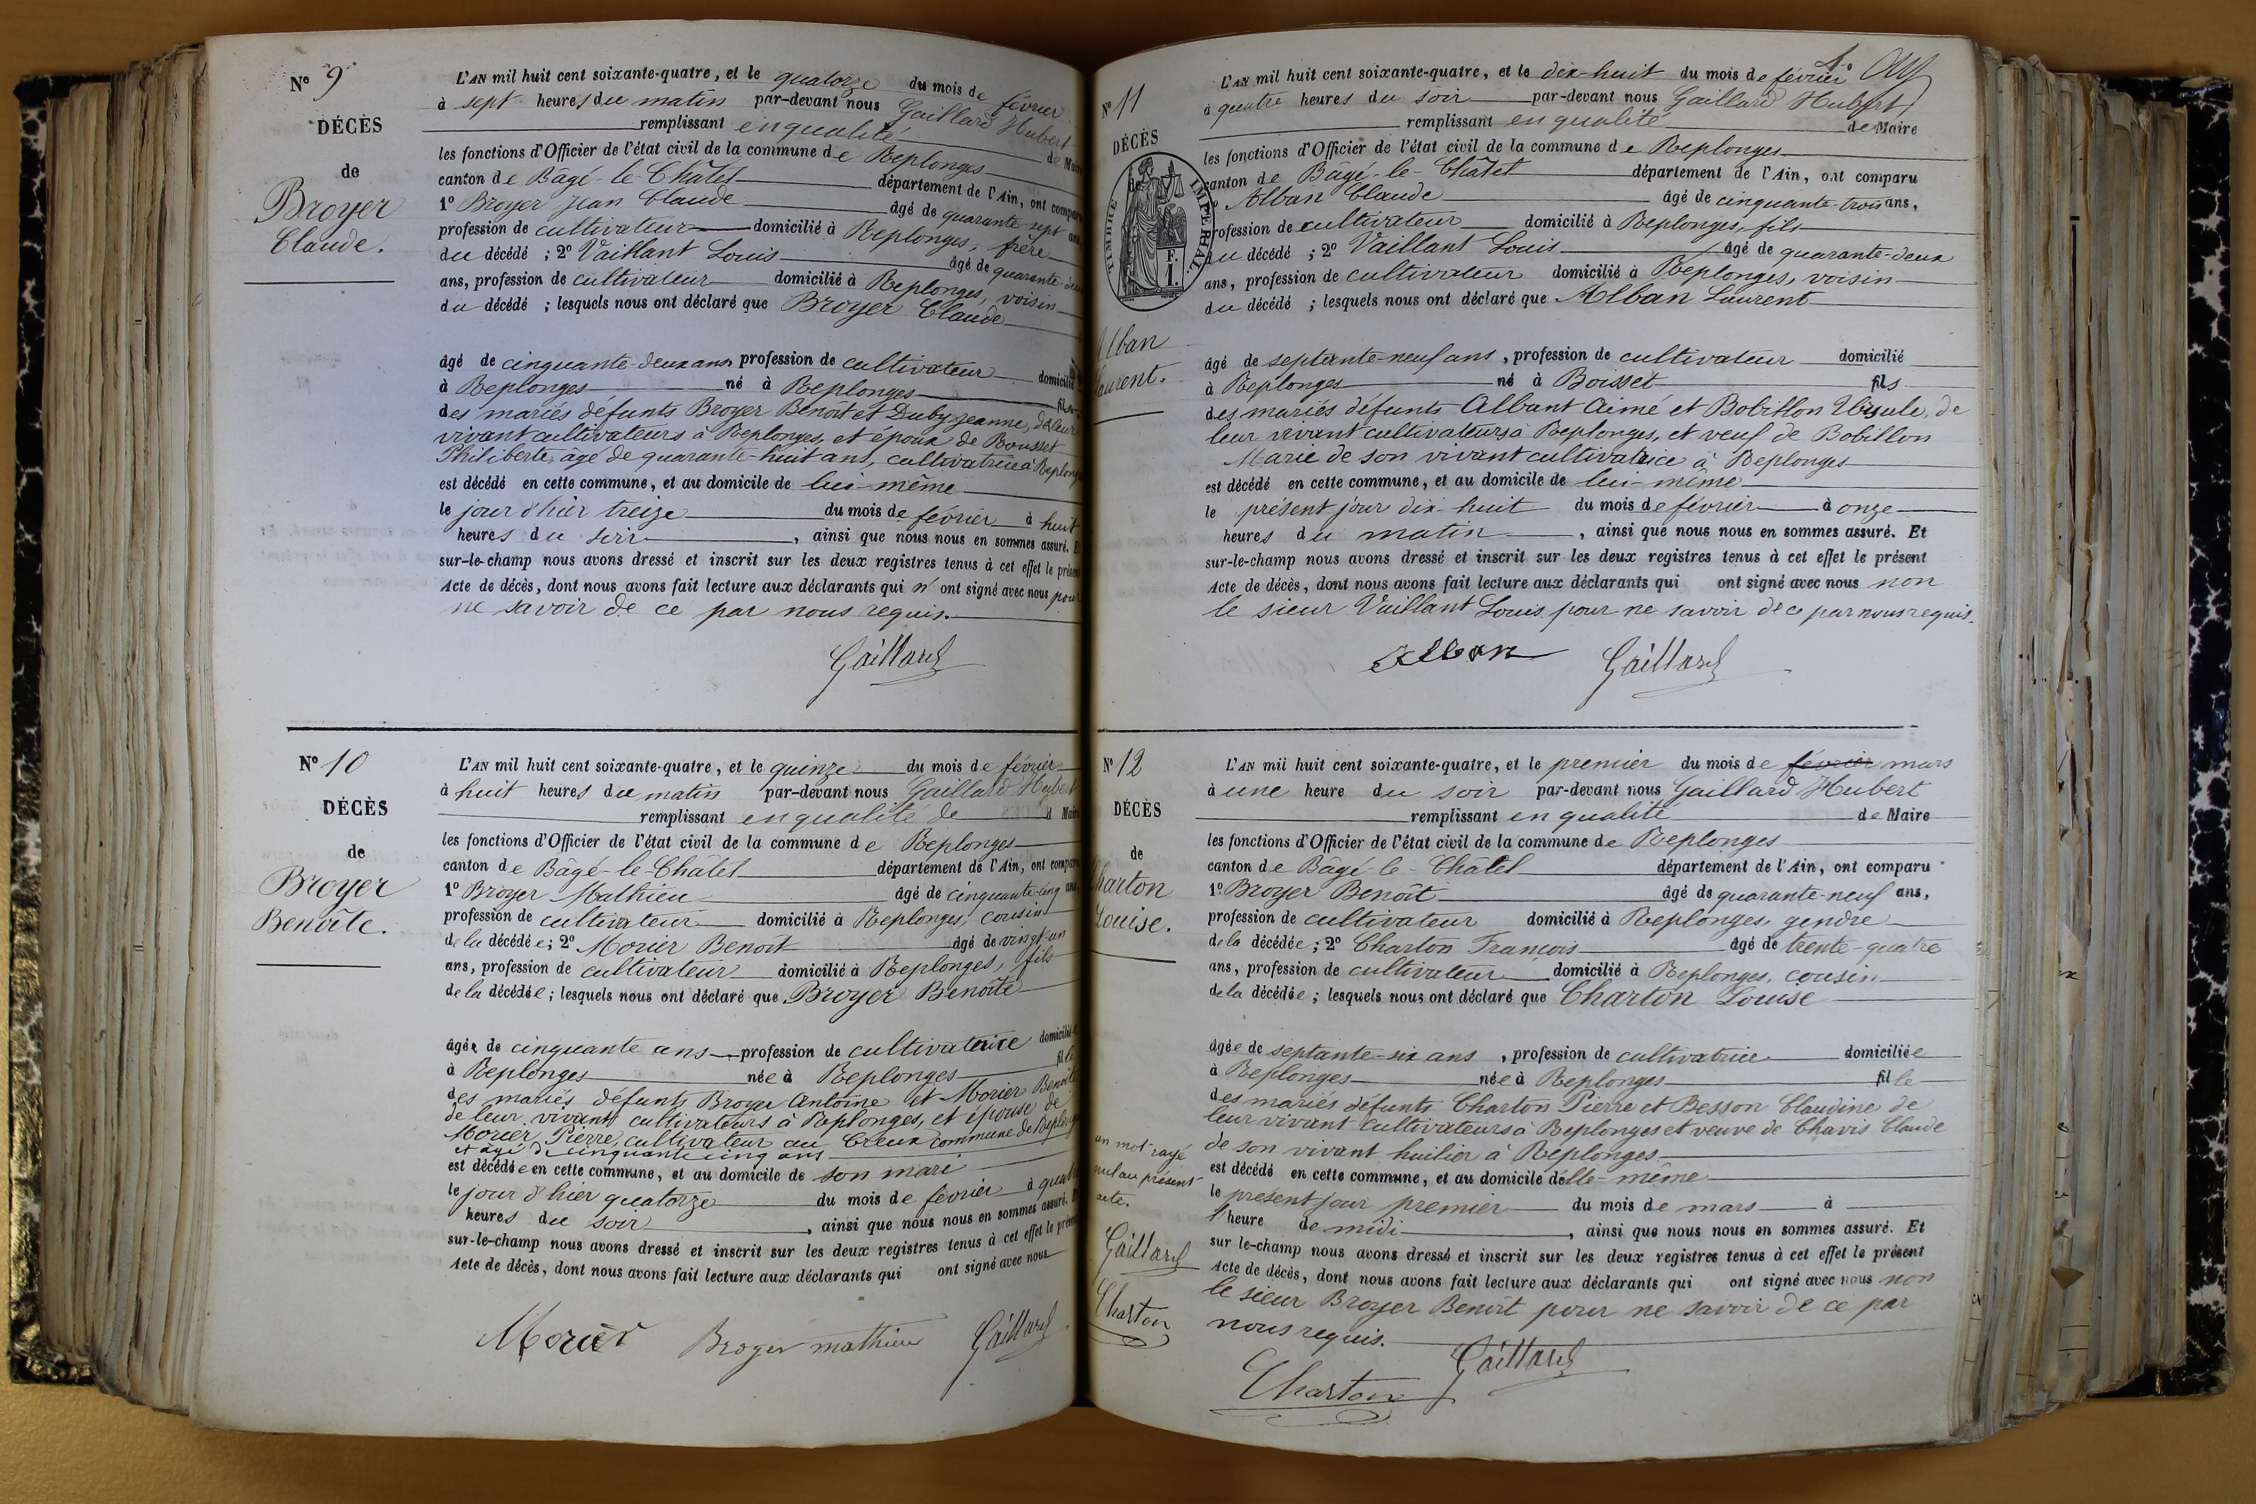 N° 9
DÉCÈS
de
Broyer
Claude.
L'AN mil huit cent soixante-quatre, et le quatorze du mois de février
à sept heures du matin par-devant nous Gaillard Hubert
remplissant en qualité de Maire
les fonctions d'Officier de l'état civil de la commune de Replonges
canton de Bâgé-le-Châtel département de l'Ain, ont comparu
1° Broyer Jean Claude âgé de quarante sept ans
profession de cultivateur domicilié à Replonges, frère
du décédé ; 2° Vaillant Louis âgé de quarante-deux
ans, profession de cultivateur domicilié à Replonges, voisin
du décédé ; lesquels nous ont déclaré que Broyer Claude
âgé de cinquante-deux ans, profession de cultivateur domicilié
à Replonges né à Replonges fils
des mariés défunts Broyer Benoît et Duby Jeanne, de leur
vivant cultivateurs à Replonges, et époux de Bousset
Philiberte, âgé de quarante-huit ans, cultivatrice à Replonges
est décédé en cette commune, et au domicile de lui-même
le jour d'hier treize du mois de février à huit
heures du soir, ainsi que nous nous en sommes assuré. Et
sur-le-champ nous avons dressé et inscrit sur les deux registres tenus à cet effet le présent
Acte de décès, dont nous avons fait lecture aux déclarants qui n'ont signé avec nous pour
ne savoir de ce par nous requis.
Gaillard
N° 10
DÉCÈS
de
Broyer
Benoîte.
L'AN mil huit cent soixante-quatre, et le quinze du mois de février
à huit heures du matin par-devant nous Gaillard Hubert
remplissant en qualité de d Maire
les fonctions d'Officier de l'état civil de la commune de Replonges
canton de Bâgé-le-Châtel département de l'Ain, ont comparu
1° Broyer Mathieu âgé de cinquante-cinq ans
profession de cultivateur domicilié à Replonges, cousin
de la décédée ; 2° Morier Benoit âgé de vingt-un
ans, profession de cultivateur domicilié à Replonges, fils
de la décédée ; lesquels nous ont déclaré que Broyer Benoîte
âgée de cinquante ans, profession de cultivatrice domiciliée
à Replonges née à Replonges fille
des mariés défunts Broyer Antoine et Morier Benoîte
de leur vivant cultivateurs à Replonges, et épouse de
Morier Pierre, cultivateur au Creux commune de Replonges
et âgé de cinquante cinq ans
est décédée en cette commune, et au domicile de son mari
le jour d'hier quatorze du mois de février à quatre
heures du soir, ainsi que nous nous en sommes assuré. Et
sur-le-champ nous avons dressé et inscrit sur les deux registres tenus à cet effet le présent
Acte de décès, dont nous avons fait lecture aux déclarants qui ont signé avec nous
Morier Broyer mathieu Gaillard
N° 11
DÉCÈS
de
TIMBRE IMPÉRIAL
E. I.
Alban
Laurent.
L'AN mil huit cent soixante-quatre, et le dix-huit du mois de février
à quatre heures du soir par-devant nous Gaillard Hubert
remplissant en qualité de Maire
les fonctions d'Officier de l'état civil de la commune de Replonges
canton de Bâgé-le-Châtel département de l'Ain, ont comparu
Alban Claude âgé de cinquante-trois ans,
profession de cultivateur domicilié à Replonges, fils
du décédé ; 2° Vaillant Louis âgé de quarante-deux
ans, profession de cultivateur domicilié à Replonges, voisin
du décédé ; lesquels nous ont déclaré que Alban Laurent
âgé de septante-neuf ans, profession de cultivateur domicilié
à Replonges né à Boisset fils
des mariés défunts Albant Aimé et Bobillon Ursule, de
leur vivant cultivateurs à Replonges, et veuf de Bobillon
Marie de son vivant cultivatrice à Replonges
est décédé en cette commune, et au domicile de lui-même
le présent jour dix-huit du mois de février à onze
heures du matin, ainsi que nous nous en sommes assuré. Et
sur-le-champ nous avons dressé et inscrit sur les deux registres tenus à cet effet le présent
Acte de décès, dont nous avons fait lecture aux déclarants qui ont signé avec nous non
le sieur Vaillant Louis pour ne savoir de ce par nous requis.
Alban Gaillard
N° 12
DÉCÈS
de
Charton
Louise.
L'AN mil huit cent soixante-quatre, et le premier du mois de février mars
à une heure du soir par-devant nous Gaillard Hubert
remplissant en qualité de Maire
les fonctions d'Officier de l'état civil de la commune de Replonges
canton de Bâgé-le-Châtel département de l'Ain, ont comparu
1° Broyer Benoît âgé de quarante-neuf ans,
profession de cultivateur domicilié à Replonges, gendre
de la décédée ; 2° Charton François âgé de trente-quatre
ans, profession de cultivateur domicilié à Replonges, cousin
de la décédée ; lesquels nous ont déclaré que Charton Louise
âgée de septante-six ans, profession de cultivatrice domiciliée
à Replonges née à Replonges fille
des mariés défunts Charton Pierre et Besson Claudine de
leur vivant cultivateurs à Replonges et veuve de Chavis Claude
de son vivant huilier à Replonges
est décédé en cette commune, et au domicile d'elle-même
le présent jour premier du mois de mars à
l'heure de midi, ainsi que nous nous en sommes assuré. Et
sur le-champ nous avons dressé et inscrit sur les deux registres tenus à cet effet le présent
Acte de décès, dont nous avons fait lecture aux déclarants qui ont signé avec nous non
le sieur Broyer Benoît pour ne savoir de ce par
nous requis.
Charton Gaillard
un mot rayé
nul au présent
acte.
Gaillard
Charton